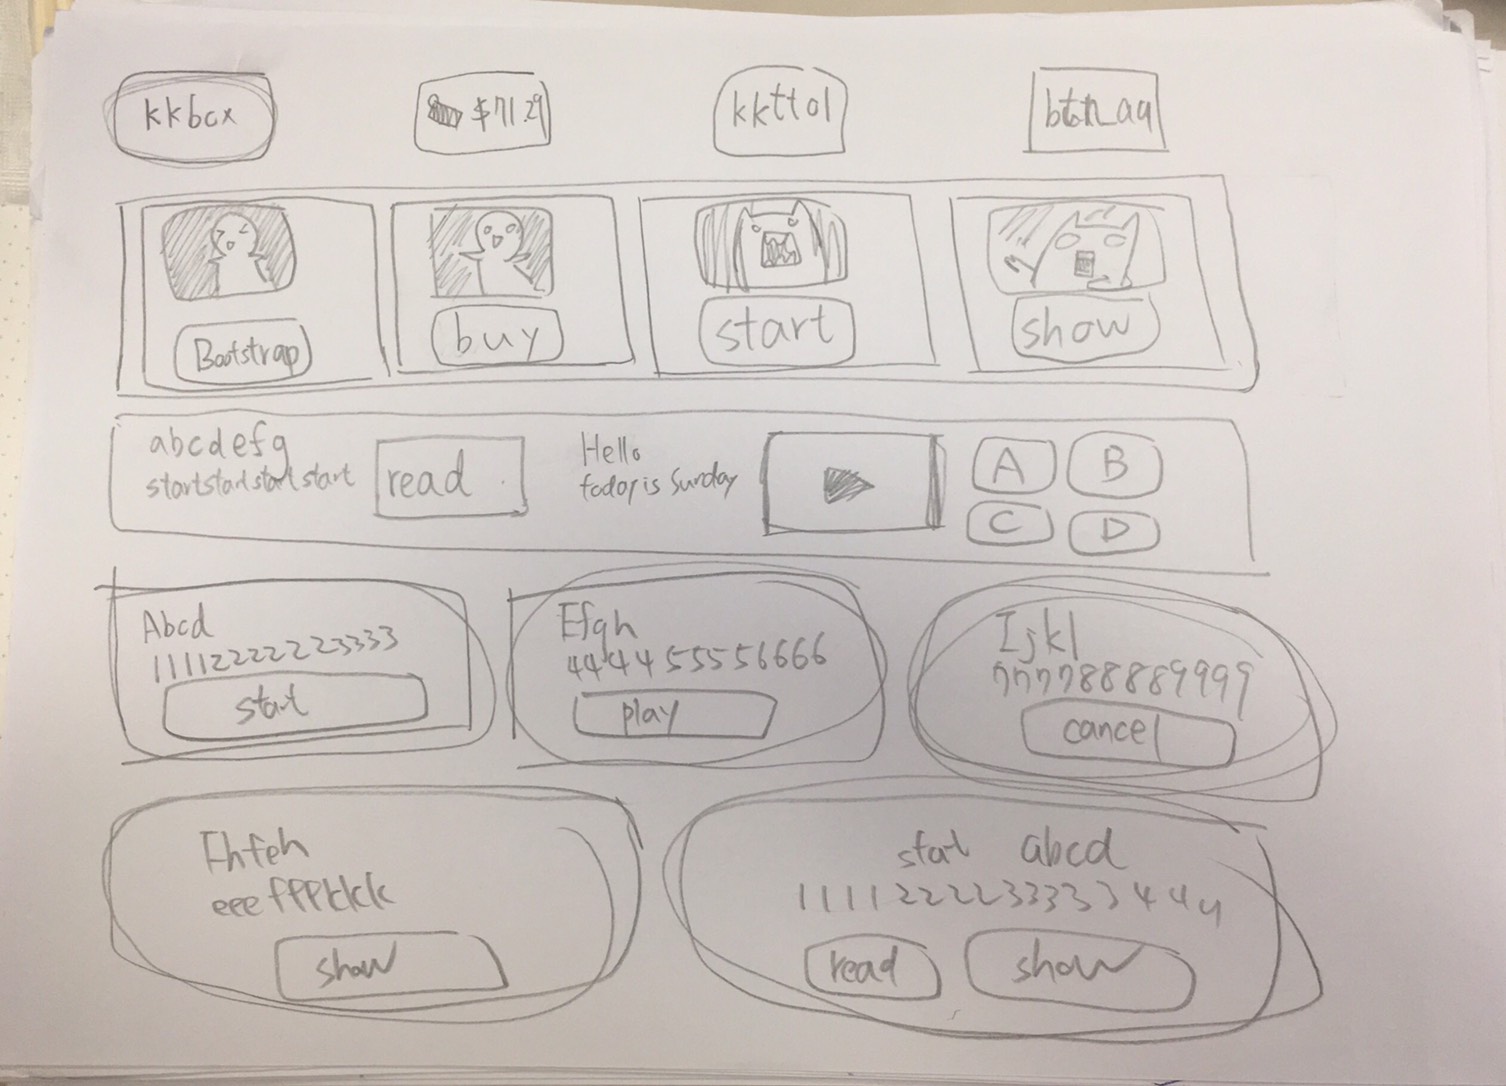 kkbcx
$71.29
kktt01
Bootstrap
buy
start
show
abcdefg
startstartstartstart
read
Hello
today is Sunday
A
B
C
D
Abcd
11112222223333
start
Efgh
4444555556666
play
Ijkl
7777888889999
cancel
show
start abcd
read
show